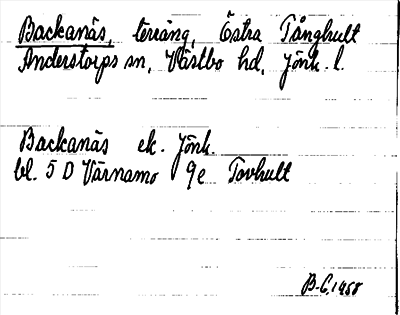 Backanäs, terräng, Östra Tånghult
Anderstorps sn, Västbo hd, Jönk. l.
Backanäs ek. Jönk.
bl. 5 D Värnamo 9e Tovhult
B-G, 1958